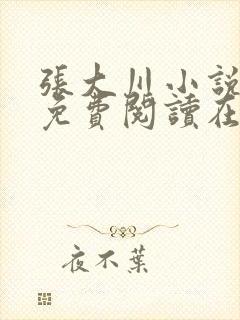 張大川小說
免費閱讀在
夜不葉